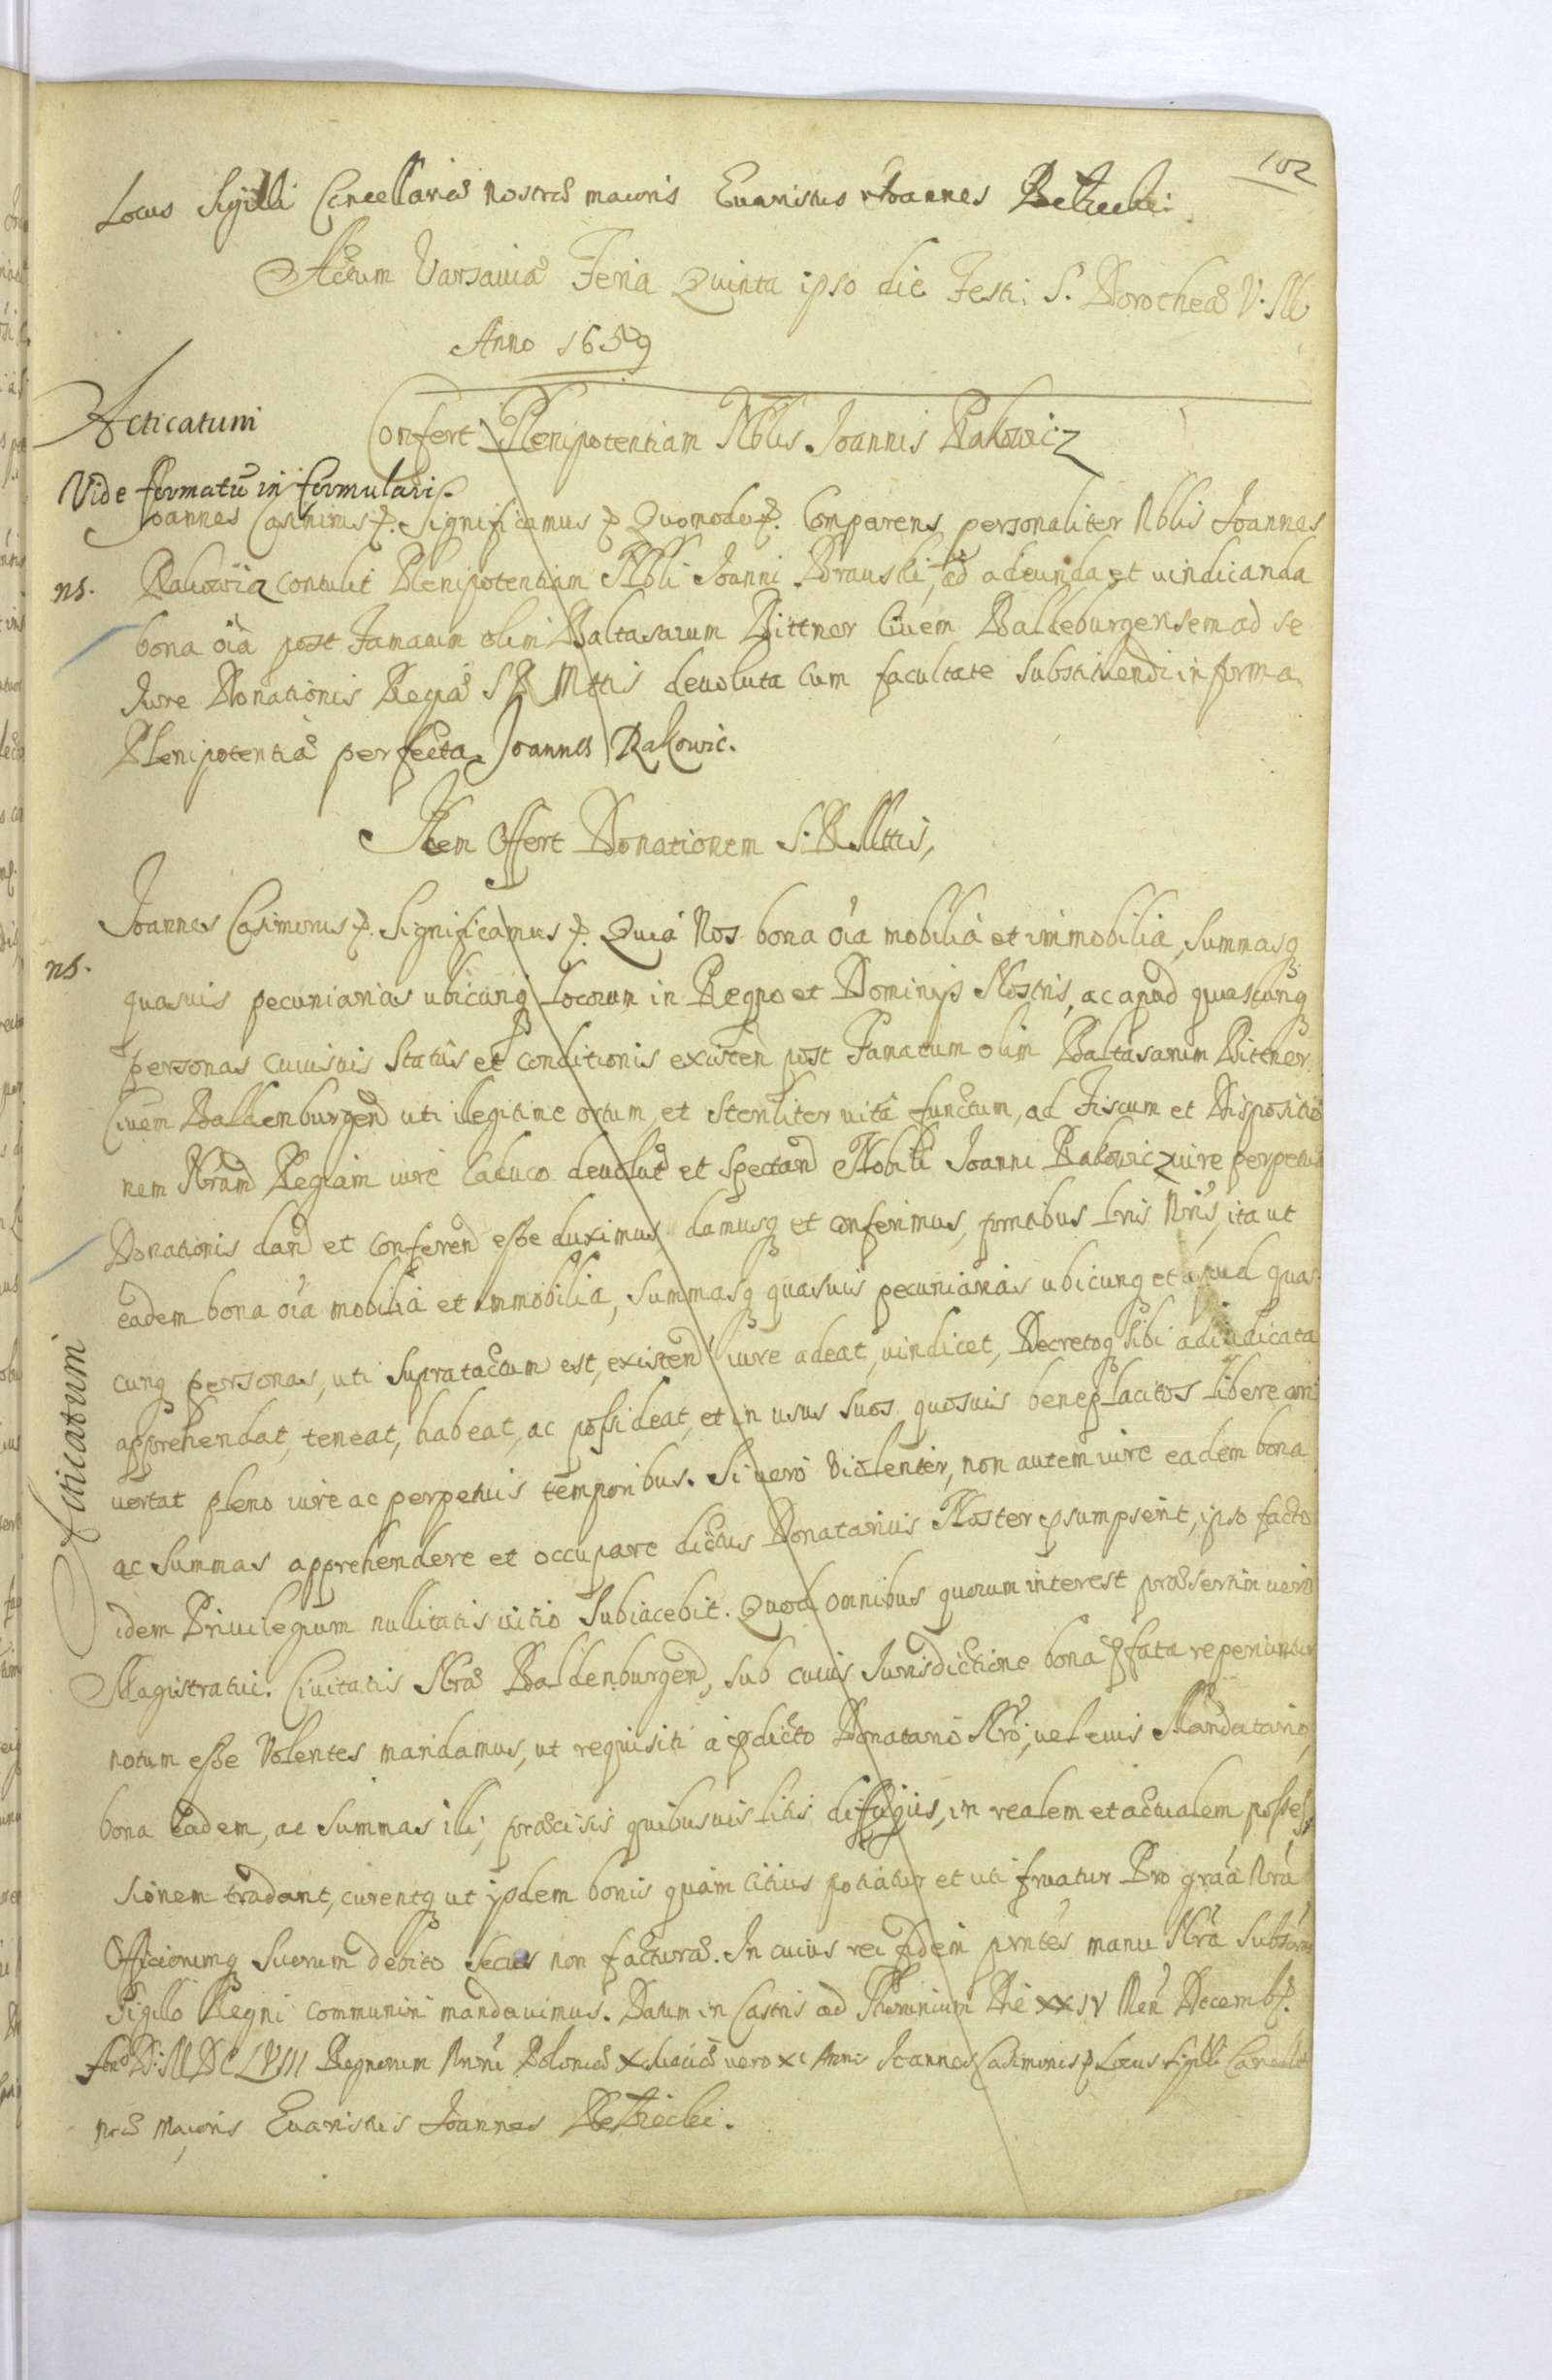 102
Locus Sigilli Cancellariæ nostræ maioris Evaristus Joannes Bełżecki
Actum Varsaviæ Feria Quinta ipso die Festi S. Dorotheæ V. M
Anno 1659
Acticatum
Confert Plenipotentiam Nblis Joannis Rakowicz
Vide formatũ in formulari
Joannes Casimirus p. Significamus p Quomodo p. Comparens personaliter Nblis Joannes
ns. Rakowicz contulit Plenipotentiam Nbli Joanni ad adeunda et vindicanda
bona oia post Famatum olim Baltasarum Bittner Civem Baldeburgensem ad se
Jure Donationis Regiæ S R Mttis devoluta cum facultate substituendi in forma
Plenipotentiæ perfecta. Joannes Rakowic.
Item Offert Donationem S. R. Mttis,
Joannes Casimirus p. Significamus p. Quia Nos bona oia mobilia et immobilia, summasq
ns.
quasvis pecuniarias ubicunq locorum in Regno et Dominijs Nostris, ac apud quascunq
personas cuiusvis Statûs et conditionis existen post Famatum olim Baltasarum Bittner
Civem Baldenburgen uti illegitime ortum, et steriliter vitâ functum, ad Fiscum et Dispositio
nem Nram Regiam iure Caduco devolut et spectan Nobili Joanni Rakowicz iure perpetuæ
Donationis dan et conferen esse duximus, damusq et conferimus, pntibus lris Nris, ita ut
eadem bona oia mobilia et immobilia, summasq quasvis pecuniarias ubicunq et apud quas
cunq personas, uti supratactum est, existen iure adeat, vindicet, Decretoq sibi adiudicata
apprehendat, teneat, habeat, ac possideat, et in usus suos quosvis beneplacitos libere con
vertat pleno iure ac perpetuis temporibus. Si vero violenter, non autem iure eadem bona
Acticatum
ac summas apprehendere et occupare dictus Donatarius Noster psumpserit, ipso facto
idem Privilegium nullitatis vitio subiacebit. Quod omnibus quorum interest præsertim vero
Magistratui Civitatis Nræ Baldenburgen, sub cuius Jurisdictione bona pfata reperiuntur
notum esse Volentes mandamus, ut requisiti à pdicto Donatario Nro, vel eius Mandatario,
bona eadem, ac summas illi, præcisis quibusvis litis diffugiis, in realem et actualem posses
sionem tradant, curentq ut ijsdem bonis quam citius potiatur et uti fruatur Pro graa Nra
Officiorumq suorum debito secus non facturæ. In cuius rei fidem pntes manu Nra Subscrip
Sigillo Regni communiri mandavimus. Datum in Castris ad Thorunium Die XXIV Men Decembr.
Ano D: M DC LVIII Regnorum Nrum Poloniæ X Sueciæ vero XI Anno Joannes Casimirus p Locus Sigilli Cancell
nræ Maioris Evaristus Joannes Bełżecki.